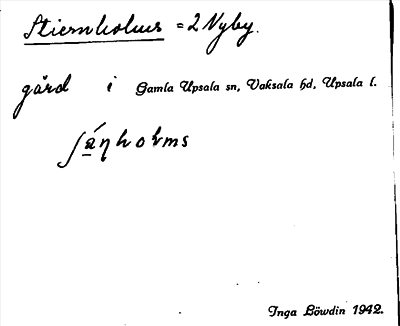 Stiernholms = 2 Nyby.
gård i Gamla Upsala sn, Vaksala hd, Upsala l.
ʃä́ŋholms
Inga Löwdin 1942.